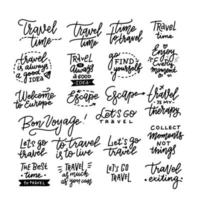 Travel
time
Travel
time
time
to travel
TRAVEL
time
travel is
always a
good IDEA
Travel
IS ALWAYS
A GOOD
IDEA
go
FIND
yourself
Enjoy
every
moment
Welcome
to Europe
Escape
Escape
travel is
my
therapy
Bon Voyage!
LET'S GO
TRAVEL
COLLECT
MOMENTS
NOT
THINGS
Let's go
travel
to travel
is to live
Let's go
travel
THE BEST
time
TO TRAVEL
TRAVEL
as much
as you can
LET'S GO
TRAVEL
Travel
exiting